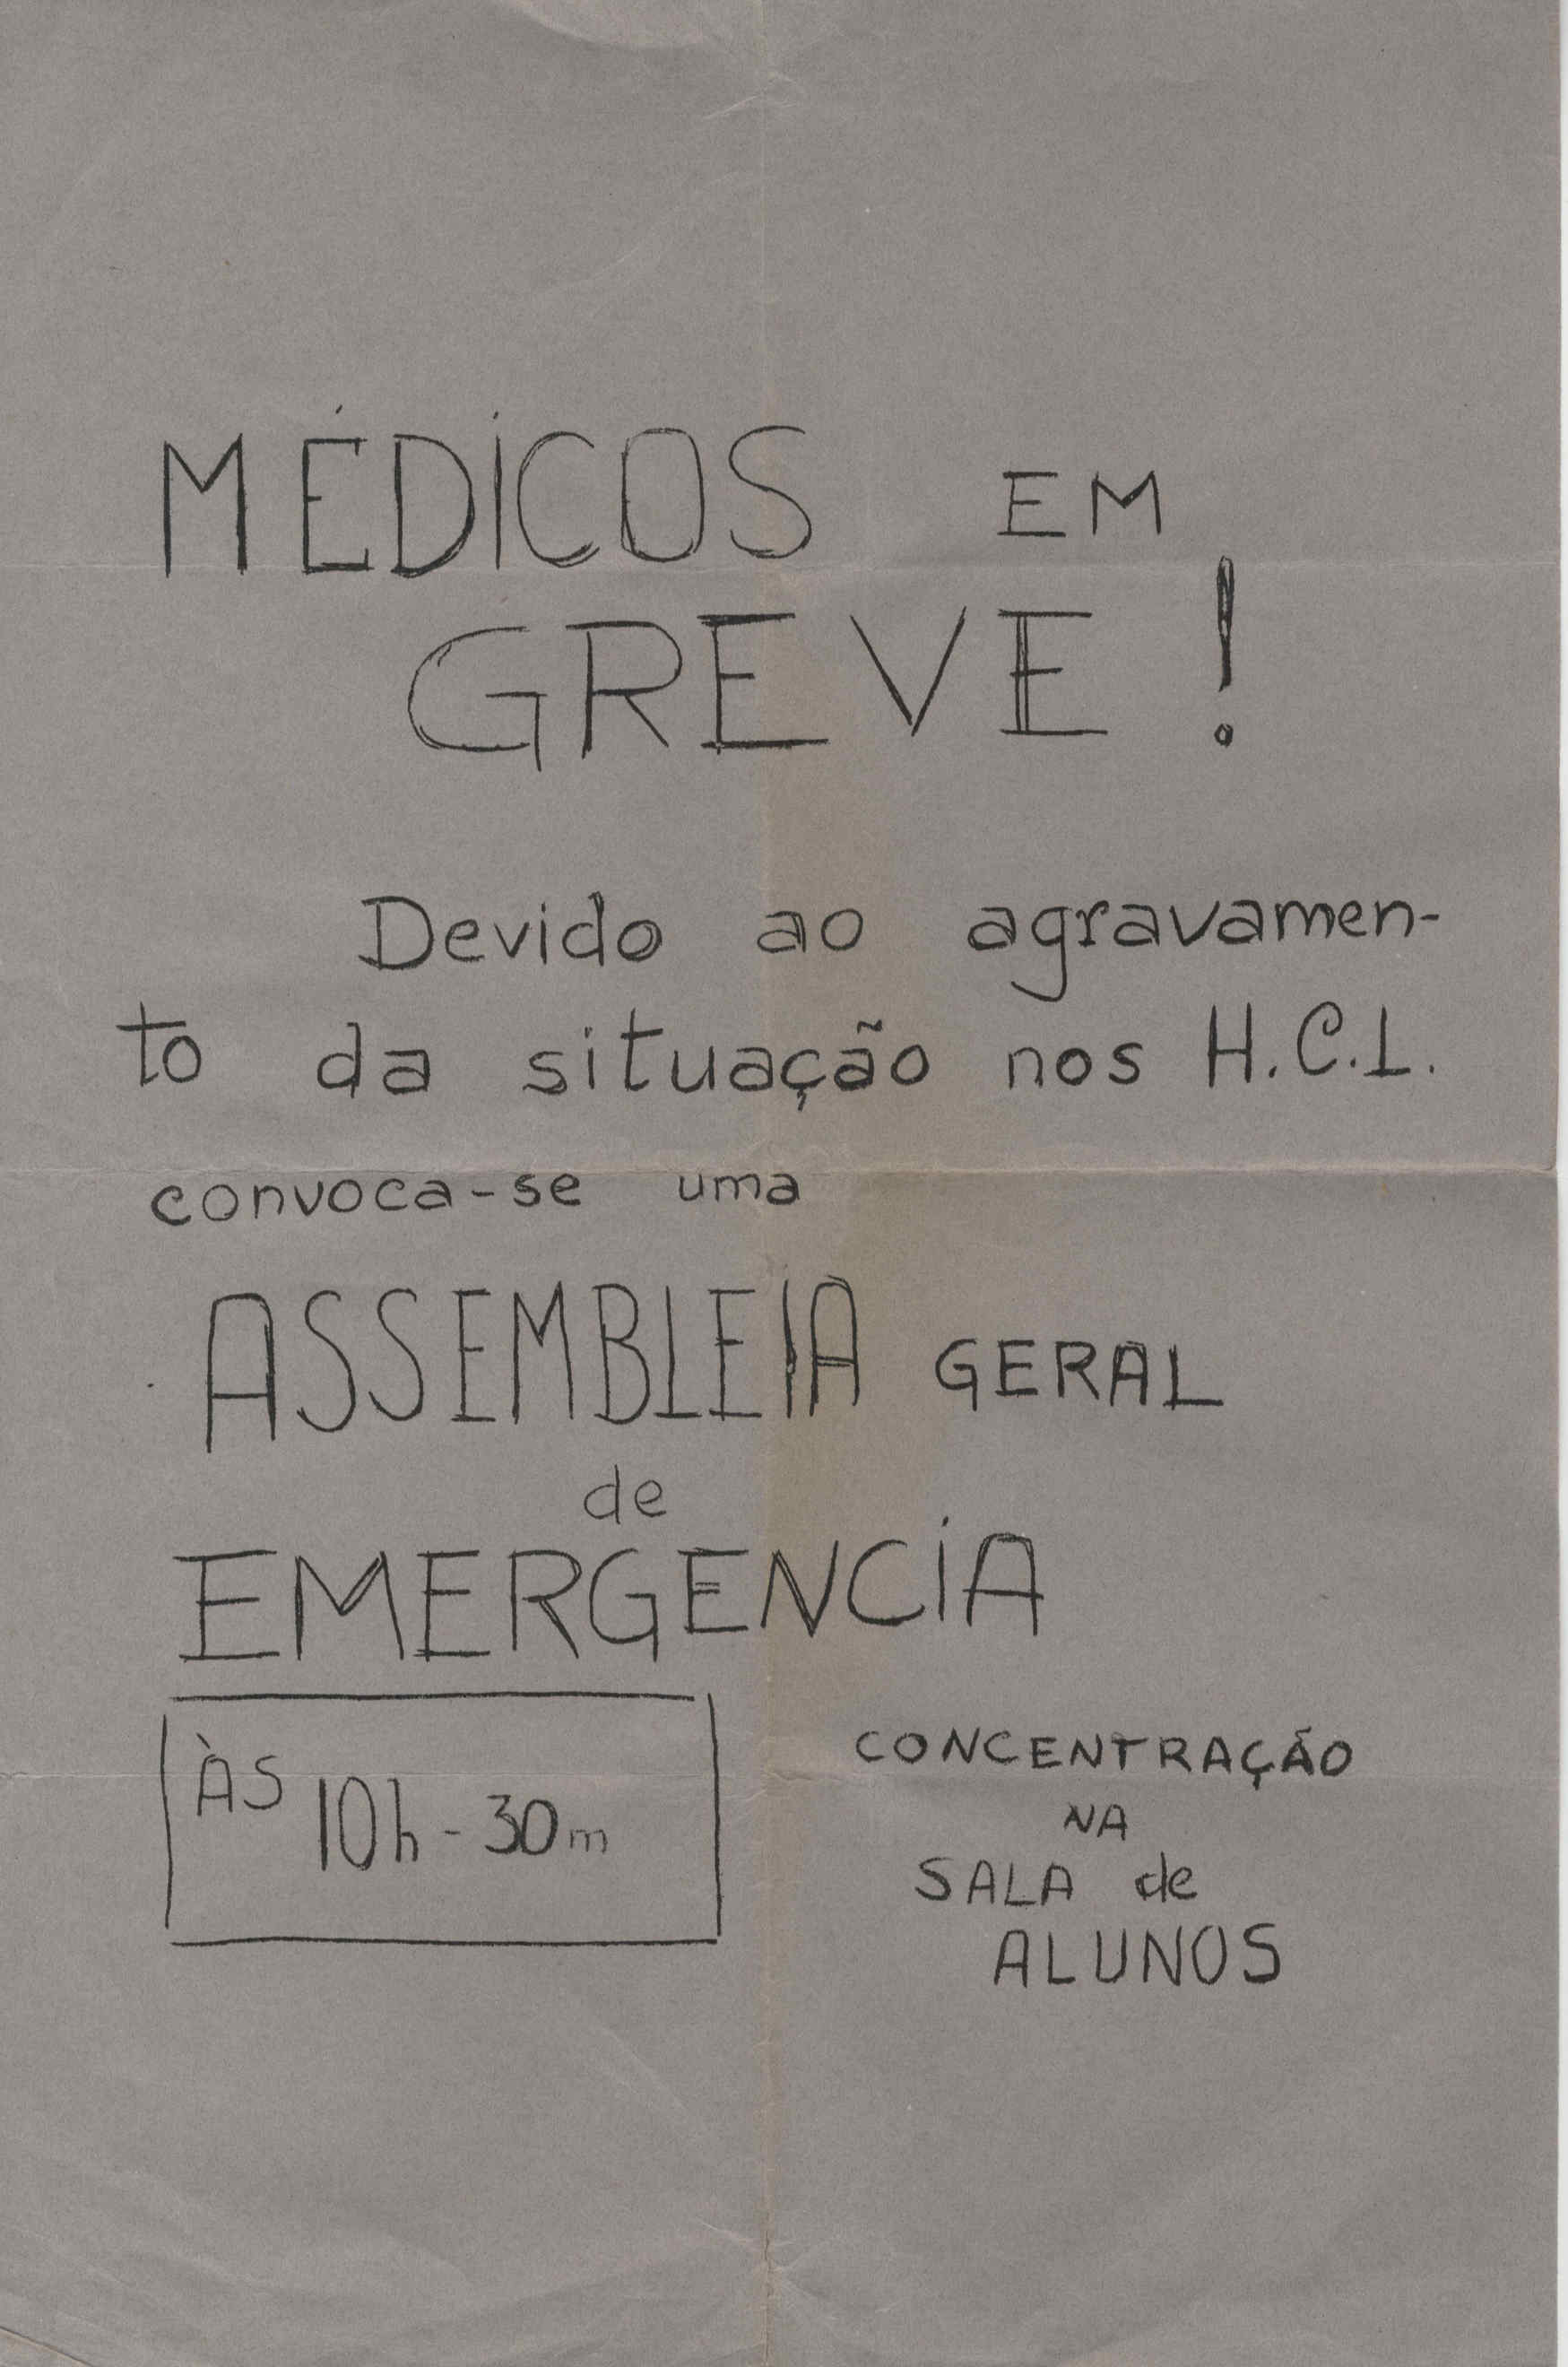 MÉDICOS EM
GREVE!
Devido ao agravamen-
to da situação nos H.C.L.
convoca-se uma
ASSEMBLEIA GERAL
de
EMERGENCIA
ÀS 10h-30m
CONCENTRAÇÃO
NA
SALA de
ALUNOS